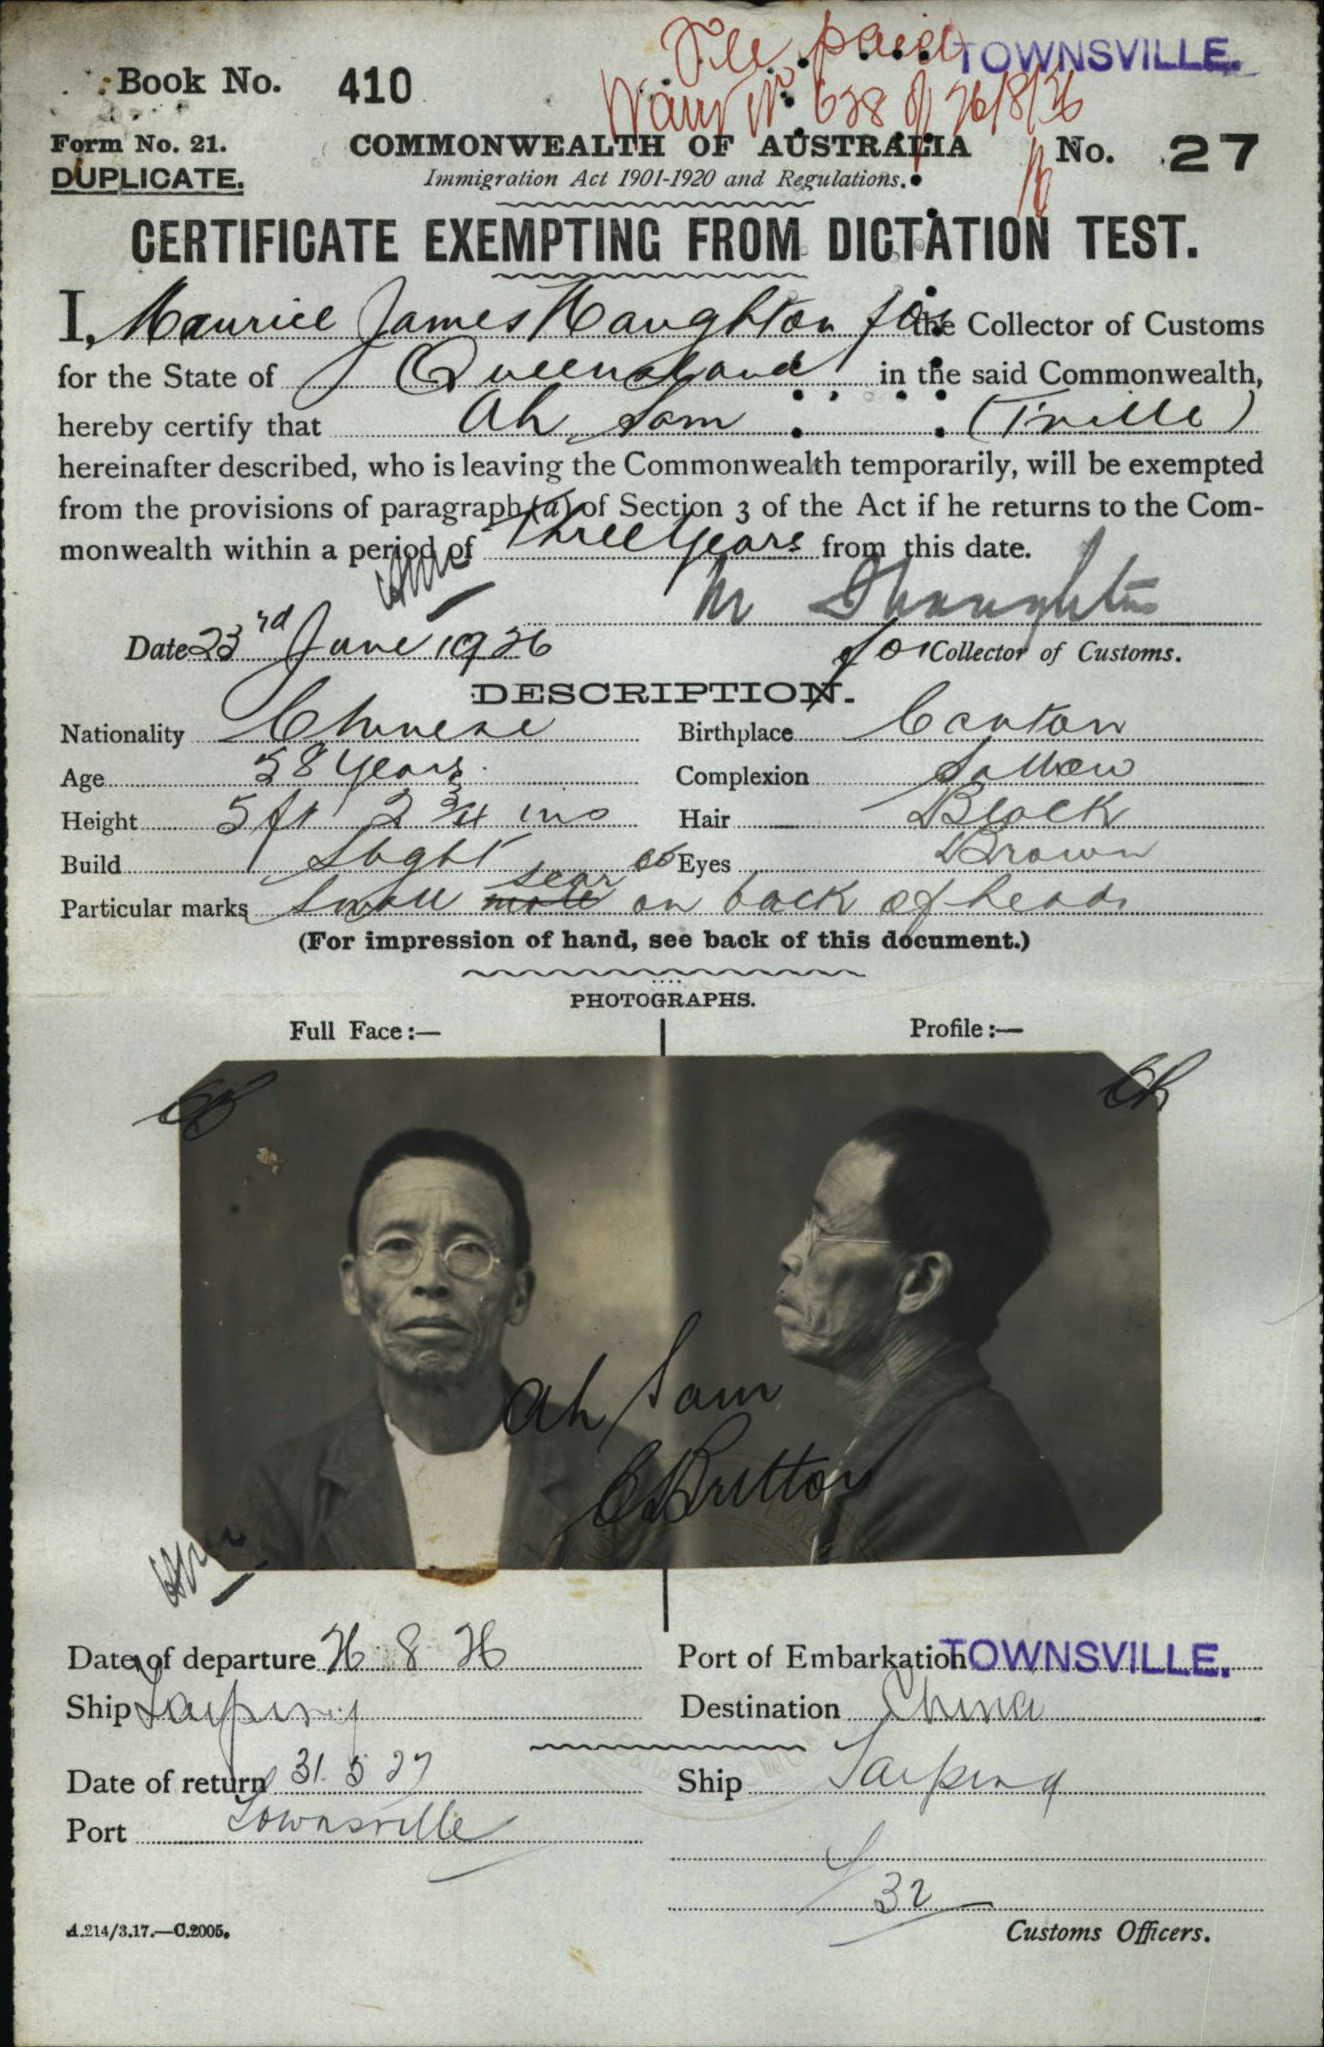 Fee paid TOWNSVILLE.
Book No. 410
No. 628 of 26/8/26
Form No. 21. COMMONWEALTH OF AUSTRALIA No. 27
DUPLICATE. Immigration Act 1901-1920 and Regulations.
CERTIFICATE EXEMPTING FROM DICTATION TEST.
I, Maurice James Naughton for the Collector of Customs
for the State of Queensland in the said Commonwealth,
hereby certify that Ah Sam (T'ville)
hereinafter described, who is leaving the Commonwealth temporarily, will be exempted
from the provisions of paragraph (a) of Section 3 of the Act if he returns to the Com-
monwealth within a period of three years from this date.
Date 23rd June 1926 for Collector of Customs.
DESCRIPTION.
Nationality Chinese Birthplace Canton
Age 58 years Complexion Sallow
Height 5 ft 2 3/4 ins Hair Black
Build Slight Eyes Brown
Particular marks Small mole scar on back of head
(For impression of hand, see back of this document.)
PHOTOGRAPHS.
Full Face:— Profile:—
Ah Sam
C Britton
Date of departure 26 8 26 Port of Embarkation TOWNSVILLE.
Ship Taiping Destination China
Date of return 31. 5 27 Ship Taiping
Port Townsville
32
A.214/3.17.—C.2005. Customs Officers.